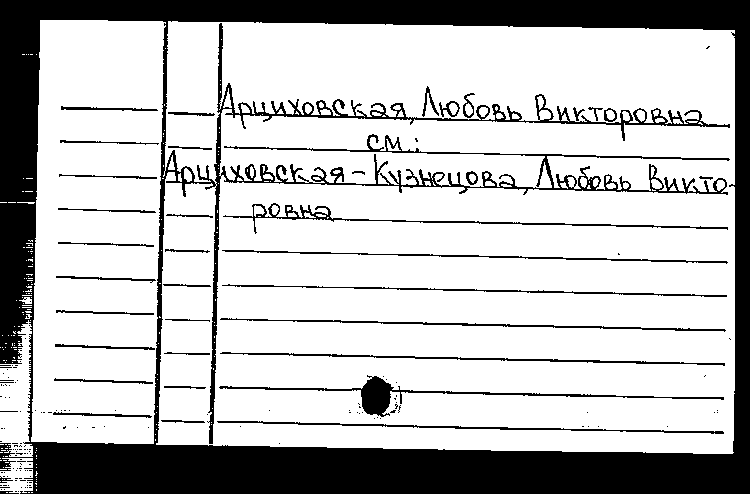 Арциховская, Любовь Викторовна
см.:
Арциховская-Кузнецова, Любовь Викто-
ровна